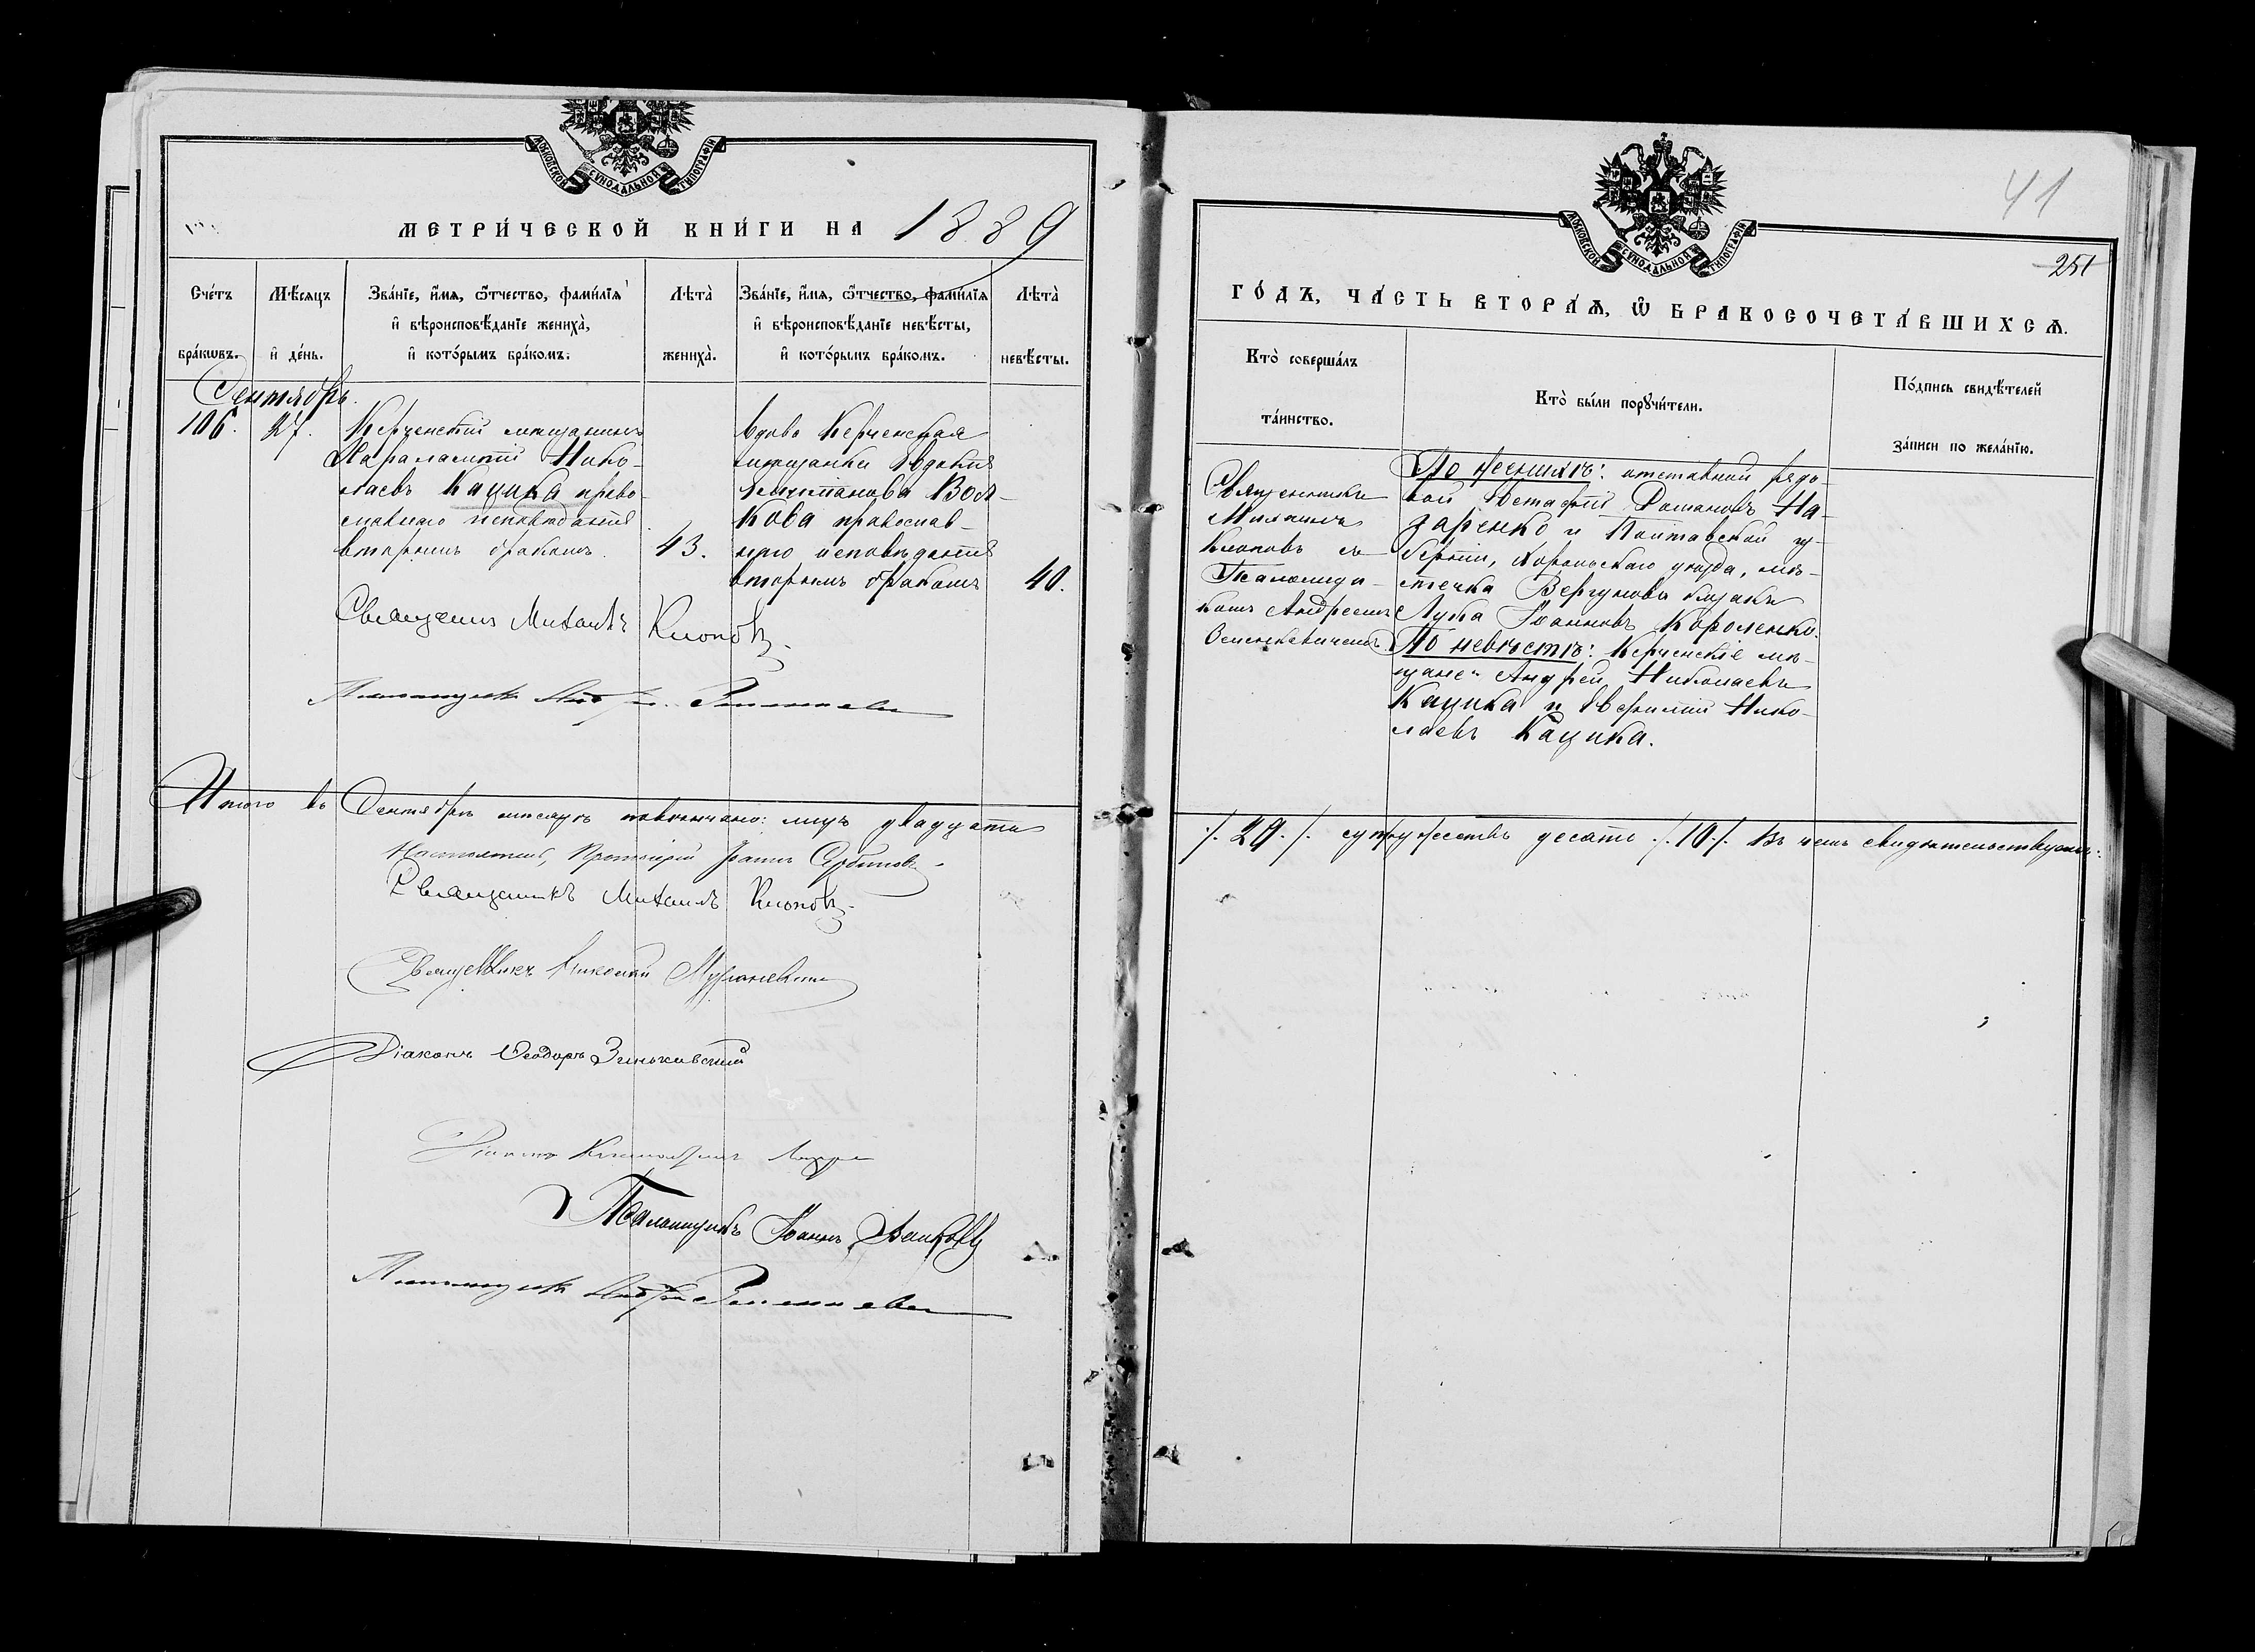 МОСКОВСКОЙ СѴНОДАЛЬНОЙ ТИПОГРАФІИ
МЕТРИ́ЧЕСКОЙ КНИ́ГИ НА 1889
Сче́тъ бра́кѡвъ.
Мѣ́сяцъ и҆ де́нь.
Зва́нїе, и҆́мя, ѻ҆́тчество, фами́лїя и҆ вѣроисповѣ́данїе жениха̀, и҆ кото́рымъ бра́комъ.
Лѣта̀ жениха̀.
Зва́нїе, и҆́мя, ѻ҆́тчество, фами́лїя и҆ вѣроисповѣ́данїе невѣ́сты, и҆ кото́рымъ бра́комъ.
Лѣта̀ невѣ́сты.
Сентябрь.
106.
27.
Керченскій мещанинъ
Харалампій Нико-
лаевъ Кацика право-
славнаго исповѣданія
вторымъ бракомъ.
43.
вдова Керченская
мещанка Евдокія
Вол-
кова православ-
наго исповѣданія
вторымъ бракомъ
40.
Священникъ Михаилъ Клоповъ.
Псаломщикъ
Итого въ Сентябрѣ мѣсяцѣ повѣнчано: лицъ двадцать
Настоятель, Протоіерей
Священникъ Михаилъ Клоповъ.
Священникъ Николай
Діаконъ Ѳеодоръ Зеньковскій
Діаконъ
Псаломщикъ Іоаннъ
Псаломщикъ
МОСКОВСКОЙ СѴНОДАЛЬНОЙ ТИПОГРАФІИ
41
251
ГО́ДЪ, ЧА́СТЬ ВТОРА́Ѧ, Ѡ҆ БРАКОСОЧЕТА́ВШИХСѦ.
Кто̀ соверша́лъ та́инство.
Кто̀ бы́ли порꙋчи́тели.
По́дпись свидѣ́телей за́писи по жела́нїю.
Священникъ
Михаилъ
Клоповъ съ
Псаломщи-
комъ Андреемъ
По женихѣ: отставной рядо-
вой Евстафій Романовъ На-
заренко и Полтавской гу-
берніи, Хорольскаго уѣзда, мѣ-
стечка козакъ
Лука Іоанновъ Короленко.
По невѣстѣ: Керченскіе мѣ-
щане: Андрей Николаевъ
Кацика и Евфимій Нико-
лаевъ Кацика.
/.20./. супружествъ десять /.10./. Въ чемъ свидѣтельствуемъ: